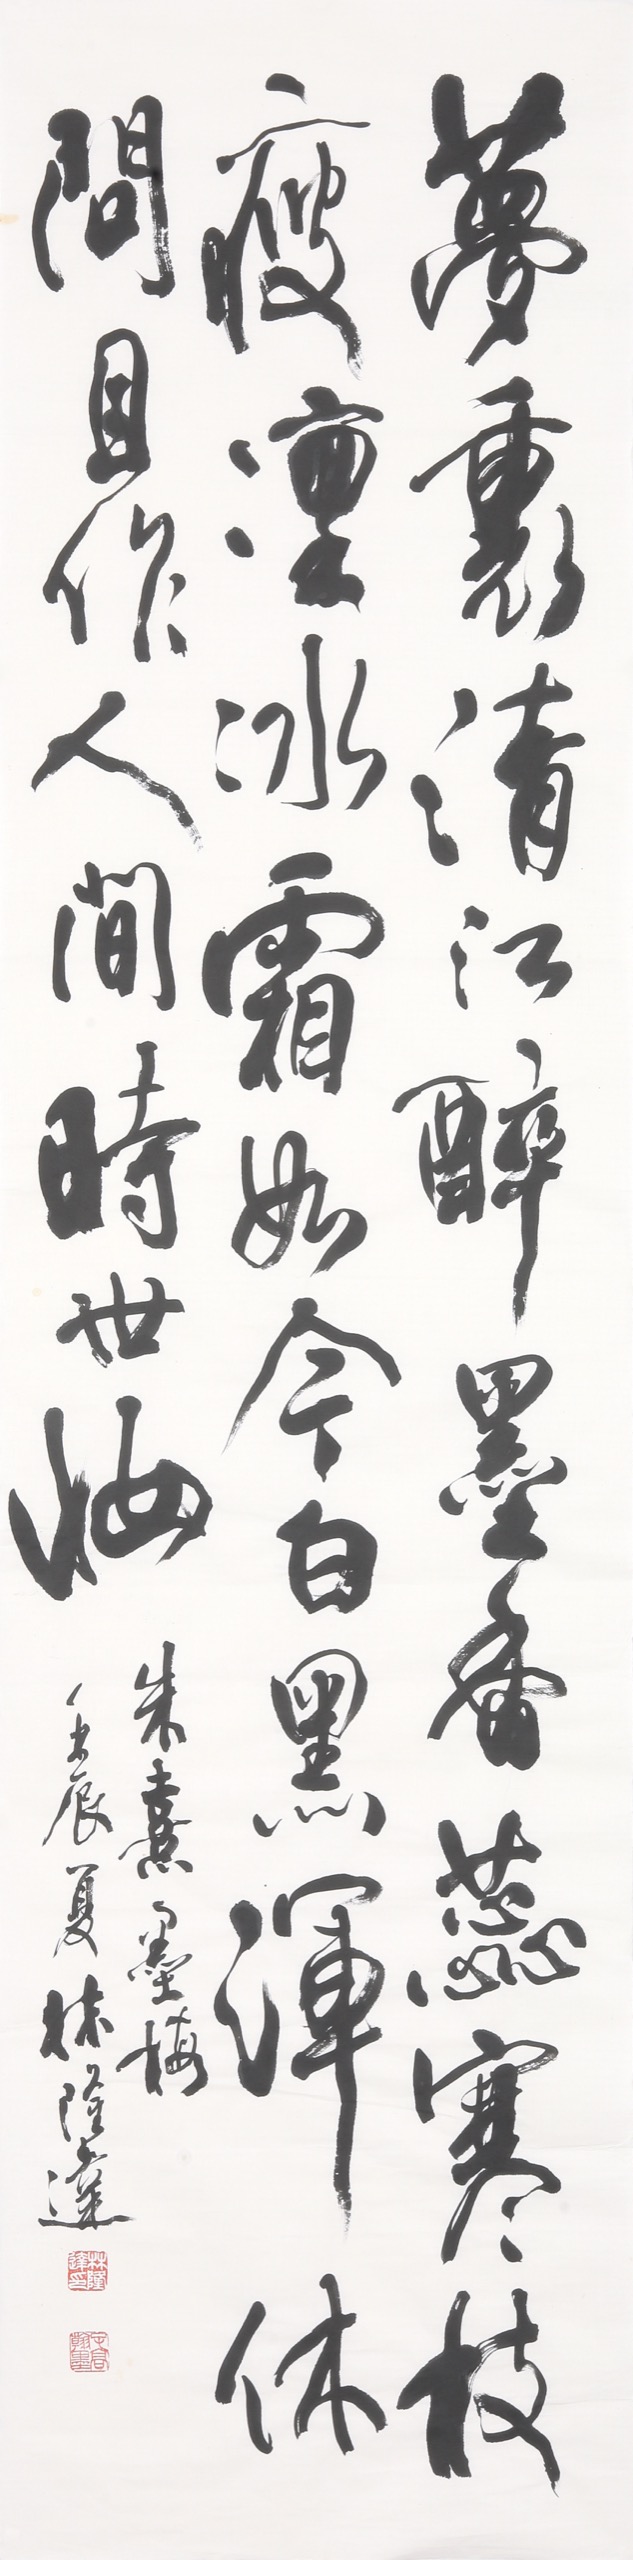 夢裏清江醉墨香蕊寒枝
瘦凜冰霜如今白黑渾休
問且作人間時世妝
朱熹墨梅
壬辰夏林隆達
林隆達印